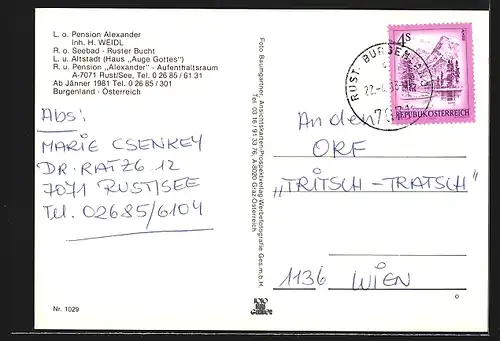 L. o. Pension Alexander
Inh. H. WEIDL
R. o. Seebad - Ruster Bucht
L. u. Altstadt (Haus „Auge Gottes")
R. u. Pension „Alexander" - Aufenthaltsraum
A-7071 Rust/See, Tel. 0 26 85 / 61 31
Ab Jänner 1981 Tel. 0 26 85 / 301
Burgenland - Österreich
Abs:
MARIE CSENKEY
DR. RATZG 12
7071 RUST/SEE
Tel. 02685/6104
Nr. 1029
Foto Baumgartner, Ansichtskarten-Prospektverlag-Werbefotografie Ges.m.b.H.
Tel. 03 16 / 91 33 76, A-8020 Graz-Österreich
4s
REPUBLIK ÖSTERREICH
RUST, BURGENLAND
An den
ORF
„TRITSCH-TRATSCH"
1136 WIEN